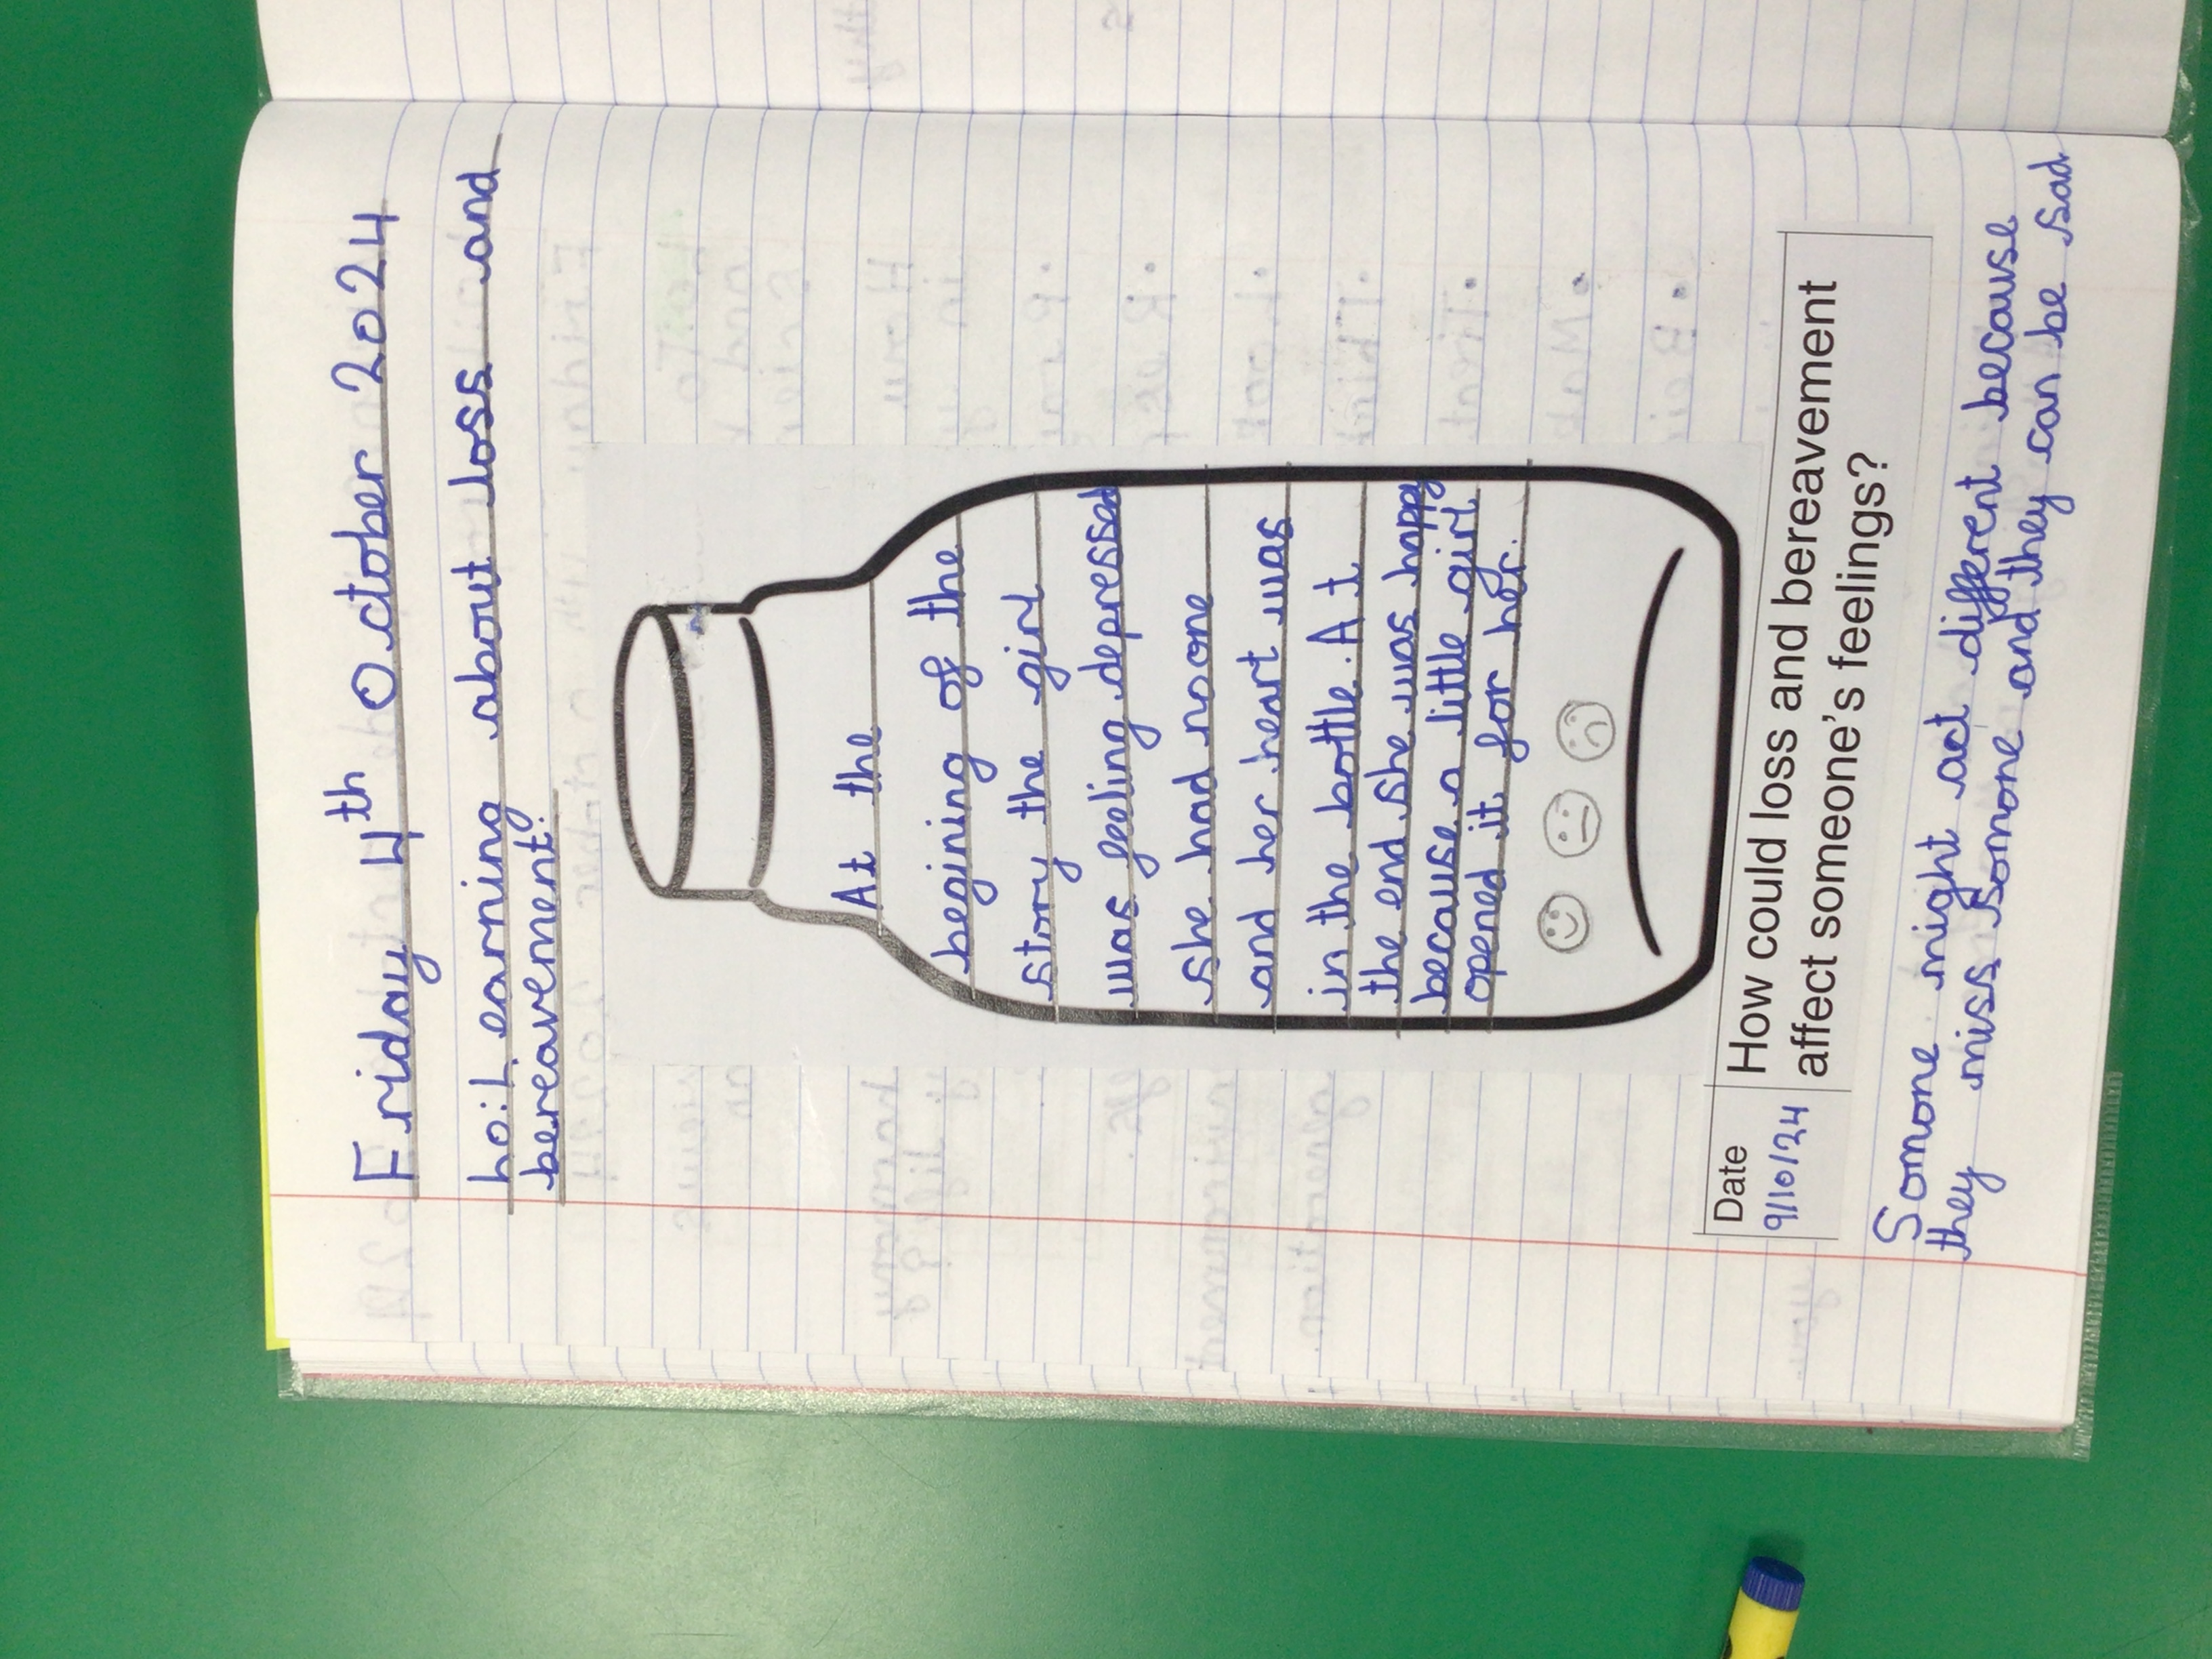 Friday 4th October 2024
h o: Learning about loss and
bereavement.
At the
begining of the
story the girl
was feeling depressed
she had no one
and her heart was
in the bottle. At
the end she was happy
because a little girl
opened it for her.
Date
9/10/24
How could loss and bereavement
affect someone's feelings?
Somone might act different because
they miss somone and they can be sad